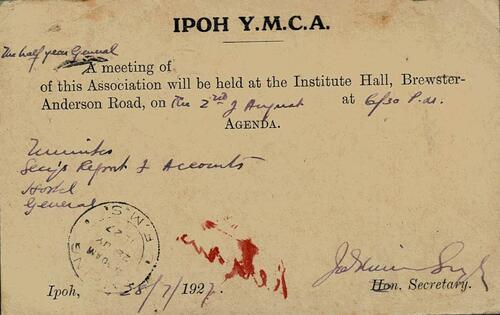 IPOH Y.M.C.A.
The half year General
A meeting of
of this Association will be held at the Institute Hall, Brewster-
Anderson Road, on The 2nd of August at 6/30 P.m.
AGENDA.
Minutes
Secy's Report & Accounts
Hostel
General
F.M.S.
Ipoh, 28/7/1927.
Singh
Hon. Secretary.